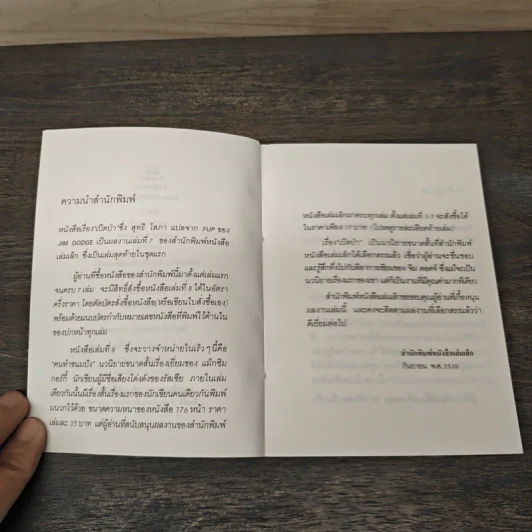 ความนำสำนักพิมพ์
หนังสือเรื่อง"เปิดป่า"ซึ่ง สุทธิ โสภา แปลจาก FUP ของ
JIM DODGE เป็นผลงานเล่มที่ 7 ของสำนักพิมพ์หนังสือ
เล่มเล็ก ซึ่งเป็นเล่มสุดท้ายในชุดแรก
ผู้อ่านที่ซื้อหนังสือของสำนักพิมพ์นี้มาตั้งแต่เล่มแรก
จนครบ 7 เล่ม จะมีสิทธิ์สั่งซื้อหนังสือเล่มที่ 8 ได้ในอัตรา
ครึ่งราคา โดยตัดบัตรสั่งซื้อหนังสือ(หรือเขียนใบสั่งซื้อเอง)
พร้อมด้วยแนบบัตรกำกับหมายเลขหนังสือที่พิมพ์ไว้ด้านใน
ของปกหน้าทุกเล่ม
หนังสือเล่มที่ 8 ซึ่งจะวางจำหน่ายในเร็วๆนี้คือ
"คนทำขนมปัง" นวนิยายขนาดสั้นเรื่องเยี่ยมของ แม็กซิม
กอร์กี้ นักเขียนผู้มีชื่อเสียงโด่งดังของรัสเซีย ภายในเล่ม
เดียวกันนั้นมีเรื่องสั้นเรื่องแรกของนักเขียนคนเดียวกันพิมพ์
ผนวกไว้ด้วย ขนาดความหนาของหนังสือ 176 หน้า ราคา
เล่มละ 35 บาท แต่ผู้อ่านที่สนับสนุนผลงานของสำนักพิมพ์
หนังสือเล่มเล็กมาครบทุกเล่ม ตั้งแต่เล่มที่ จะสั่งซื้อได้
ในราคาเพียง บาท (โปรดดูรายละเอียดท้ายเล่ม)
เรื่อง"เปิดป่า" เป็นนวนิยายขนาดสั้นที่สำนักพิมพ์
หนังสือเล่มเล็กได้เลือกสรรแล้ว เชื่อว่าผู้อ่านจะชื่นชอบ
และรู้สึกทึ่งไปกับลีลาการเขียนของ จิม ดอดจ์ ซึ่งแม้จะเป็น
นวนิยายเรื่องแรกของเขา แต่ก็เป็นงานที่มีคุณค่ามากทีเดียว
สำนักพิมพ์หนังสือเล่มเล็กขอขอบคุณผู้อ่านที่เกื้อหนุน
ผลงานเล่มนี้ และคงจะติดตามผลงานที่เลือกสรรแล้วว่า
ดีเยี่ยมต่อไป
สำนักพิมพ์หนังสือเล่มเล็ก
กันยายน พ.ศ. 2530